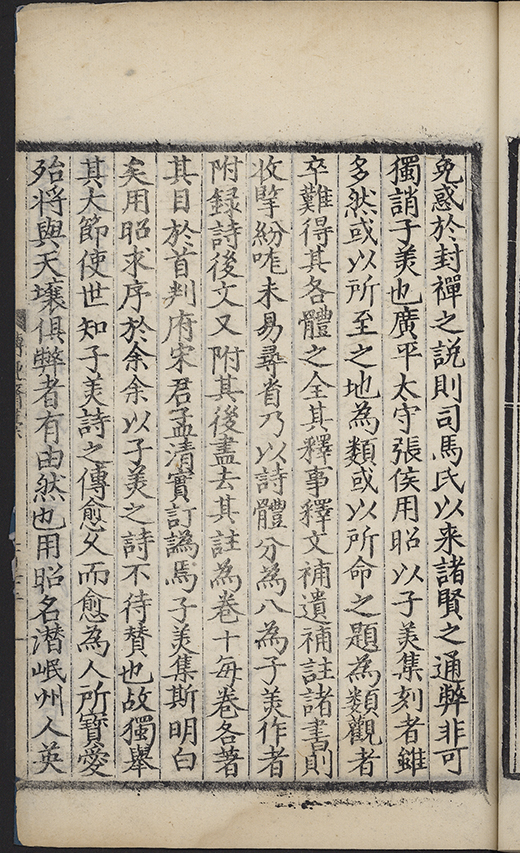 免惑於封禪之說則司馬氏以来諸賢之通弊非可
獨誚子羙也廣平太守張侯用昭以子羙集刻者雖
多然或以所至之地為類或以所命之題為類觀者
卒難得其各體之全其釋事釋文補遺補註諸書則
收擥紛咋未易尋省乃以詩體分為八為子羙作者
附録詩後文又附其後盡去其註為卷十每卷各著
其目於首判府宋君孟清實訂譌焉子羙集斯明白
矣用昭求序於余余以子羙之詩不待賛也故獨舉
其大節使世知子羙詩之傳愈久而愈為人所寳愛
殆将與天壤俱弊者有由然也用昭名潜岷州人英